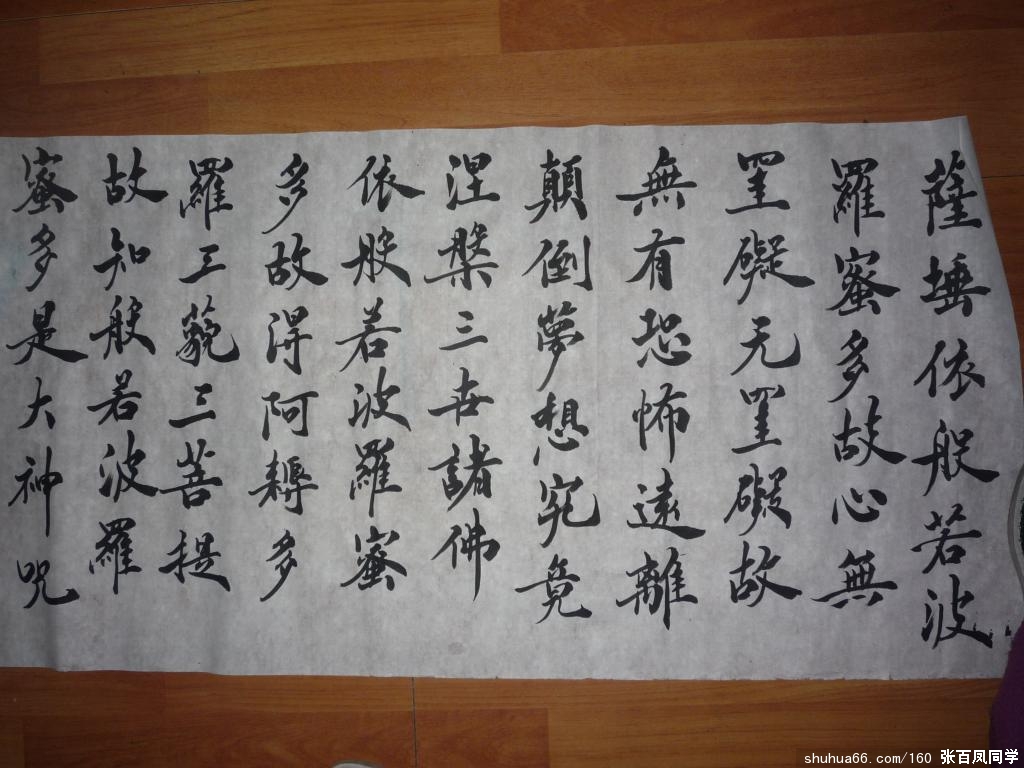 薩埵依般若波
羅蜜多故心無
罣礙无罣礙故
無有恐怖遠離
顛倒夢想究竟
涅槃三世諸佛
依般若波羅蜜
多故得阿耨多
羅三藐三菩提
故知般若波羅
蜜多是大神咒
shuhua66.com/160 张百凤同学